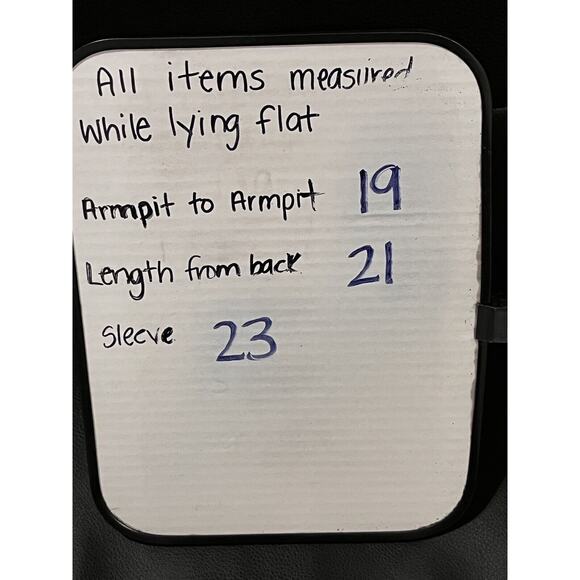 All items measured
while lying flat
Armpit to Armpit 19
Length from back 21
Sleeve 23